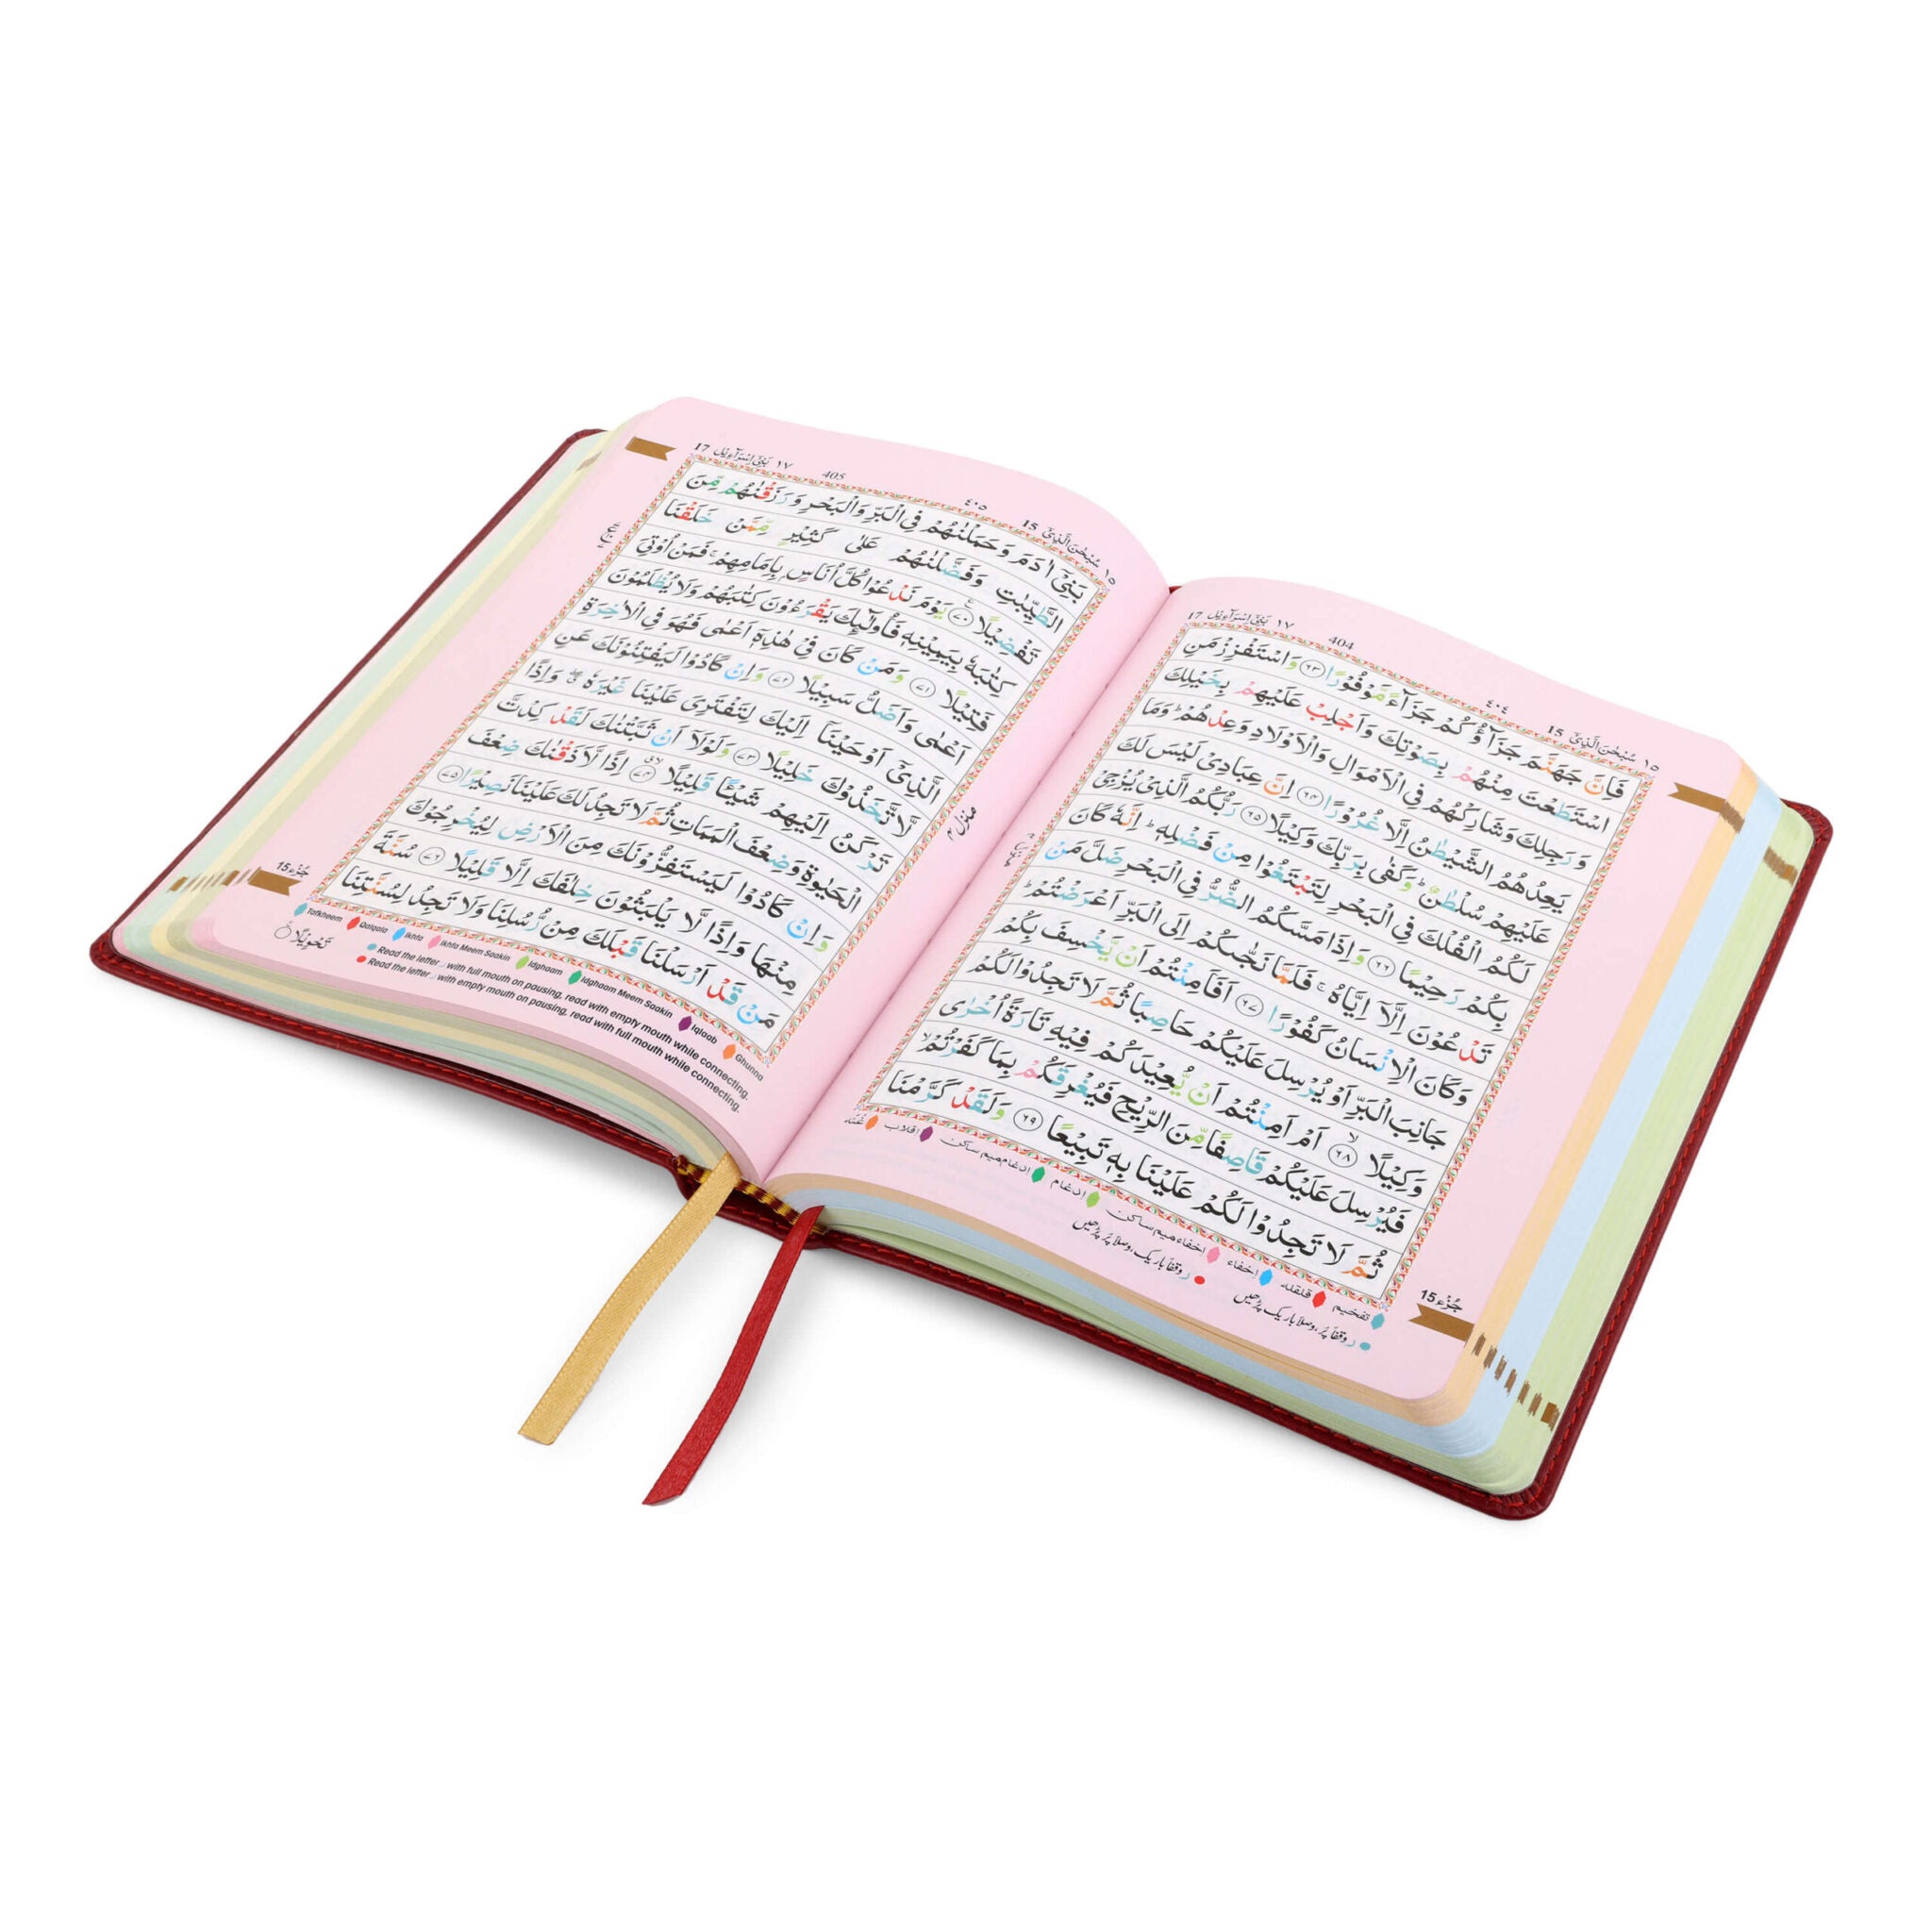 ١٥ سُبْحٰنَ الَّذِیْٓ 15
٤٠٤
404
١٧ بَنِیْٓ اِسْرَآءِیْل 17
فَاِنَّ جَهَنَّمَ جَزَآؤُكُمْ جَزَآءً مَّوْفُوْرًا ﴿٦٣﴾ وَاسْتَفْزِزْ مَنِ
اسْتَطَعْتَ مِنْهُمْ بِصَوْتِكَ وَاَجْلِبْ عَلَيْهِمْ بِخَيْلِكَ
وَرَجِلِكَ وَشَارِكْهُمْ فِی الْاَمْوَالِ وَالْاَوْلَادِ وَعِدْهُمْ ؕ وَمَا
يَعِدُهُمُ الشَّيْطٰنُ اِلَّا غُرُوْرًا ﴿٦٤﴾ اِنَّ عِبَادِیْ لَيْسَ لَكَ
عَلَيْهِمْ سُلْطٰنٌ ؕ وَكَفٰی بِرَبِّكَ وَكِيْلًا ﴿٦٥﴾ رَبُّكُمُ الَّذِیْ يُزْجِیْ
لَكُمُ الْفُلْكَ فِی الْبَحْرِ لِتَبْتَغُوْا مِنْ فَضْلِهٖ ؕ اِنَّهٗ كَانَ
بِكُمْ رَحِيْمًا ﴿٦٦﴾ وَاِذَا مَسَّكُمُ الضُّرُّ فِی الْبَحْرِ ضَلَّ مَنْ
تَدْعُوْنَ اِلَّآ اِيَّاهُ ۚ فَلَمَّا نَجّٰىكُمْ اِلَی الْبَرِّ اَعْرَضْتُمْ ؕ
وَكَانَ الْاِنْسَانُ كَفُوْرًا ﴿٦٧﴾ اَفَاَمِنْتُمْ اَنْ يَّخْسِفَ بِكُمْ
جَانِبَ الْبَرِّ اَوْ يُرْسِلَ عَلَيْكُمْ حَاصِبًا ثُمَّ لَا تَجِدُوْا لَكُمْ
وَكِيْلًا ﴿٦٨﴾ اَمْ اَمِنْتُمْ اَنْ يُّعِيْدَكُمْ فِيْهِ تَارَةً اُخْرٰی
فَيُرْسِلَ عَلَيْكُمْ قَاصِفًا مِّنَ الرِّيْحِ فَيُغْرِقَكُمْ بِمَا كَفَرْتُمْ
ثُمَّ لَا تَجِدُوْا لَكُمْ عَلَيْنَا بِهٖ تَبِيْعًا ﴿٦٩﴾ وَلَقَدْ كَرَّمْنَا
جُزْء 15
تفخیم قلقلہ اِخفاء اِخفاء میم ساکن اِدغام اِدغام میم ساکن اقلاب غُنّہ
ر وقفاً پُر، وصلاً باریک پڑھیں
ر وقفاً باریک، وصلاً پُر پڑھیں
١٥ سُبْحٰنَ الَّذِیْٓ 15
٤٠٥
405
١٧ بَنِیْٓ اِسْرَآءِیْل 17
بَنِیْٓ اٰدَمَ وَحَمَلْنٰهُمْ فِی الْبَرِّ وَالْبَحْرِ وَرَزَقْنٰهُمْ مِّنَ
الطَّيِّبٰتِ وَفَضَّلْنٰهُمْ عَلٰی كَثِيْرٍ مِّمَّنْ خَلَقْنَا
تَفْضِيْلًا ﴿٧٠﴾ يَوْمَ نَدْعُوْا كُلَّ اُنَاسٍۢ بِاِمَامِهِمْ ۚ فَمَنْ اُوْتِیَ
كِتٰبَهٗ بِيَمِيْنِهٖ فَاُولٰٓئِكَ يَقْرَءُوْنَ كِتٰبَهُمْ وَلَا يُظْلَمُوْنَ
فَتِيْلًا ﴿٧١﴾ وَمَنْ كَانَ فِیْ هٰذِهٖٓ اَعْمٰی فَهُوَ فِی الْاٰخِرَةِ
اَعْمٰی وَاَضَلُّ سَبِيْلًا ﴿٧٢﴾ وَاِنْ كَادُوْا لَيَفْتِنُوْنَكَ عَنِ
الَّذِیْٓ اَوْحَيْنَآ اِلَيْكَ لِتَفْتَرِیَ عَلَيْنَا غَيْرَهٗ ۖ وَاِذًا
لَّاتَّخَذُوْكَ خَلِيْلًا ﴿٧٣﴾ وَلَوْلَآ اَنْ ثَبَّتْنٰكَ لَقَدْ كِدْتَّ
تَرْكَنُ اِلَيْهِمْ شَيْئًا قَلِيْلًا ﴿٧٤﴾ اِذًا لَّاَذَقْنٰكَ ضِعْفَ
الْحَيٰوةِ وَضِعْفَ الْمَمَاتِ ثُمَّ لَا تَجِدُ لَكَ عَلَيْنَا نَصِيْرًا ﴿٧٥﴾
وَاِنْ كَادُوْا لَيَسْتَفِزُّوْنَكَ مِنَ الْاَرْضِ لِيُخْرِجُوْكَ
مِنْهَا وَاِذًا لَّا يَلْبَثُوْنَ خِلٰفَكَ اِلَّا قَلِيْلًا ﴿٧٦﴾ سُنَّةَ
مَنْ قَدْ اَرْسَلْنَا قَبْلَكَ مِنْ رُّسُلِنَا وَلَا تَجِدُ لِسُنَّتِنَا
تَحْوِيْلًا
منزل ٤
جُزْء 15
Tafkheem Qalqala Ikhfa Ikhfa Meem Saakin Idghaam Idghaam Meem Saakin Iqlaab Ghunna
Read the letter ر with full mouth on pausing, read with empty mouth while connecting.
Read the letter ر with empty mouth on pausing, read with full mouth while connecting.